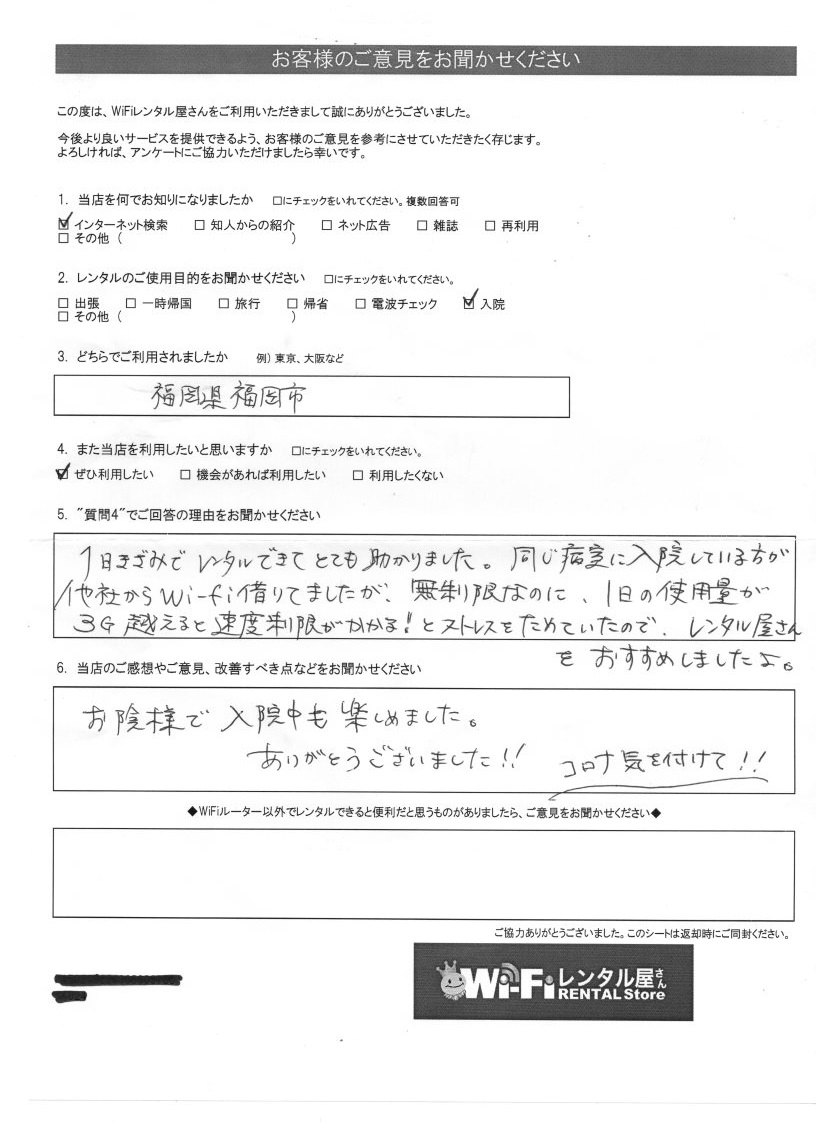 お客様のご意見をお聞かせください
この度は、WiFiレンタル屋さんをご利用いただきまして誠にありがとうございました。
今後より良いサービスを提供できるよう、お客様のご意見を参考にさせていただきたく存じます。
よろしければ、アンケートにご協力いただけましたら幸いです。
1. 当店を何でお知りになりましたか □にチェックをいれてください。複数回答可
☑ インターネット検索 □ 知人からの紹介 □ ネット広告 □ 雑誌 □ 再利用
□ その他 ( )
2. レンタルのご使用目的をお聞かせください □にチェックをいれてください。
□ 出張 □ 一時帰国 □ 旅行 □ 帰省 □ 電波チェック ☑ 入院
□ その他 ( )
3. どちらでご利用されましたか 例) 東京、大阪など
福岡県福岡市
4. また当店を利用したいと思いますか □にチェックをいれてください。
☑ ぜひ利用したい □ 機会があれば利用したい □ 利用したくない
5. "質問4"でご回答の理由をお聞かせください
1日きざみでレンタルできてとても助かりました。同じ病室に入院している方が
他社からWi-fi借りてましたが、無制限なのに、1日の使用量が
3G越えると速度制限がかかる!とストレスをためていたので、レンタル屋さん
をおすすめしましたよ。
6. 当店のご感想やご意見、改善すべき点などをお聞かせください
お陰様で入院中も楽しめました。
ありがとうございました!! コロナ気を付けて!!
◆WiFiルーター以外でレンタルできると便利だと思うものがありましたら、ご意見をお聞かせください◆
ご協力ありがとうございました。このシートは返却時にご同封ください。
Wi-Fiレンタル屋さん
RENTAL Store